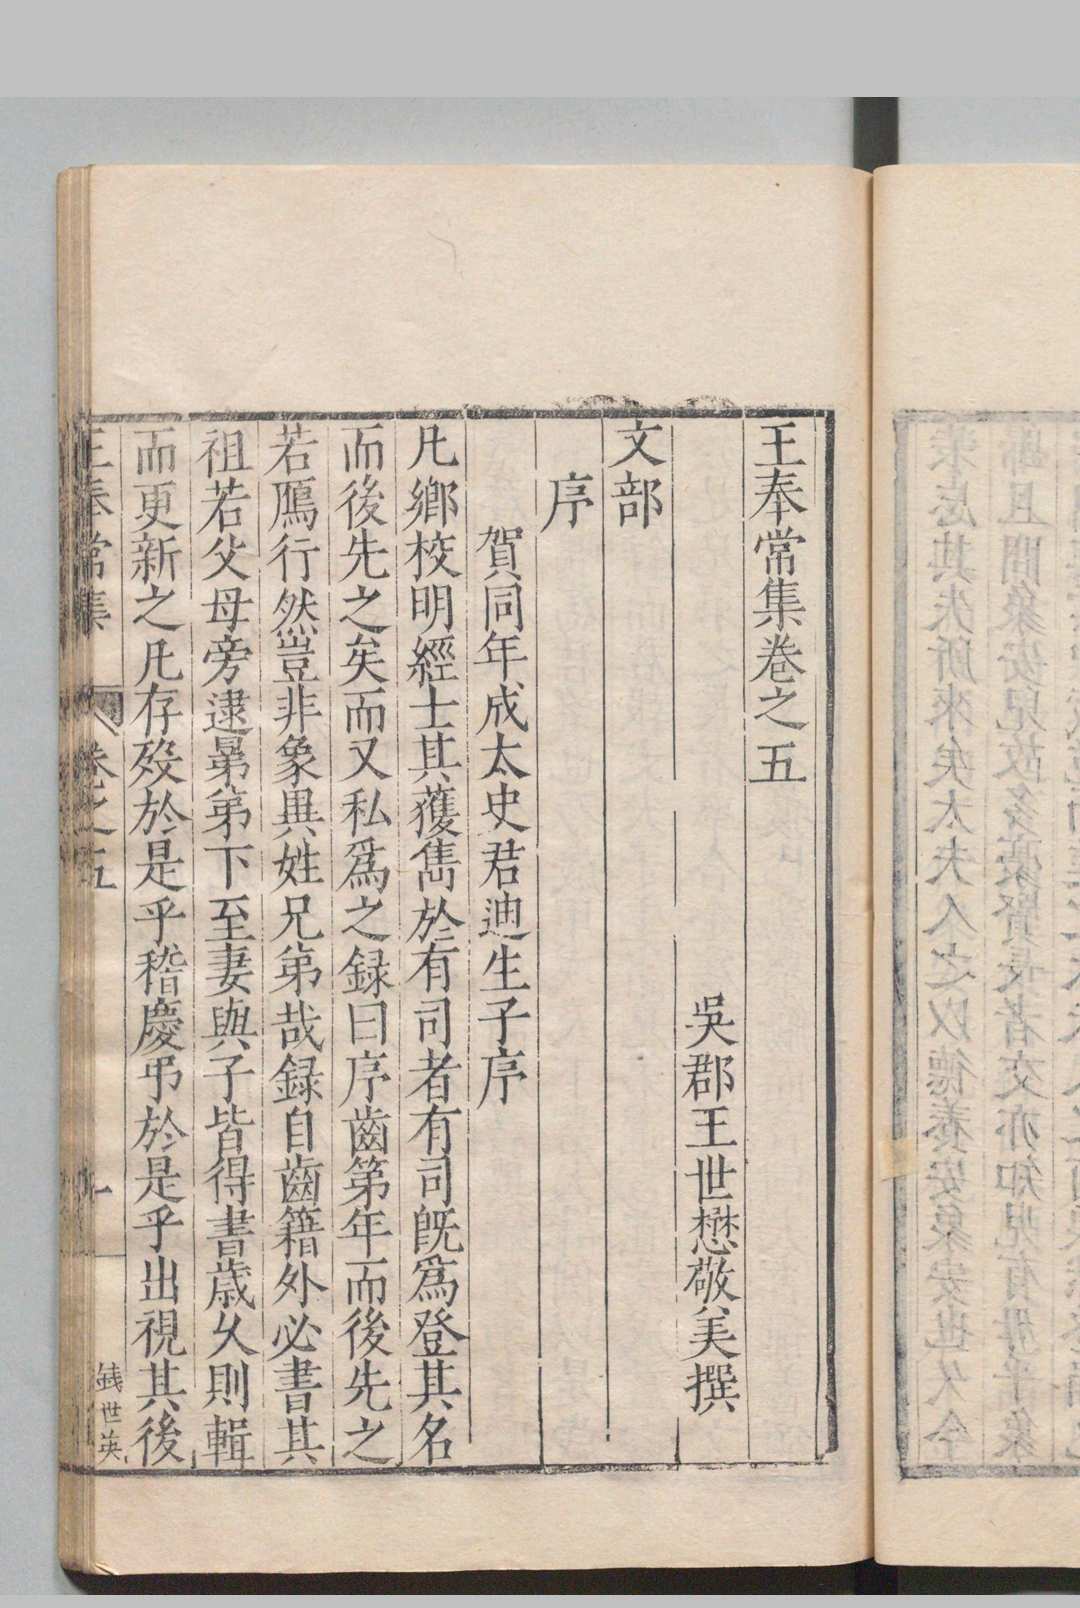 王奉常集卷之五
吳郡王世懋敬美撰
文部
序
賀同年成太史君迪生子序
凡鄉校明經士其獲雋於有司者有司既爲登其名
而後先之矣而又私爲之録曰序齒第年而後先之
若鴈行然豈非象異姓兄弟哉録自齒籍外必書其
祖若父母旁逮曩第下至妻與子皆得書歲乆則輯
而更新之凡存歿於是乎稽慶弔於是乎出視其後
王奉常集 卷之五 一 錢世英